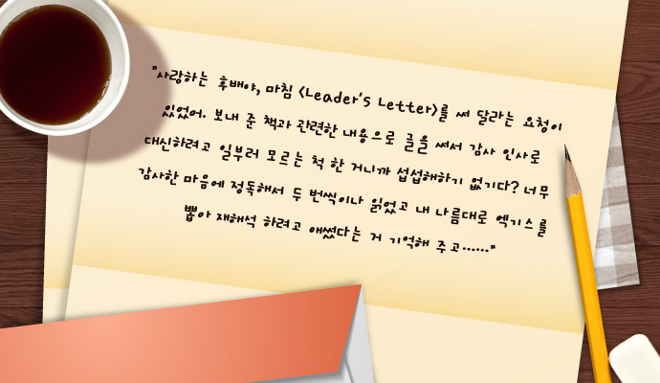 "사랑하는 후배야, 마침 <Leader's Letter>를 써 달라는 요청이
있었어. 보내 준 책과 관련한 내용으로 글을 써서 감사 인사로
대신하려고 일부러 모르는 척 한 거니까 섭섭해하기 없기다? 너무
감사한 마음에 정독해서 두 번씩이나 읽었고 내 나름대로 엑기스를
뽑아 재해석 하려고 애썼다는 거 기억해 주고……"